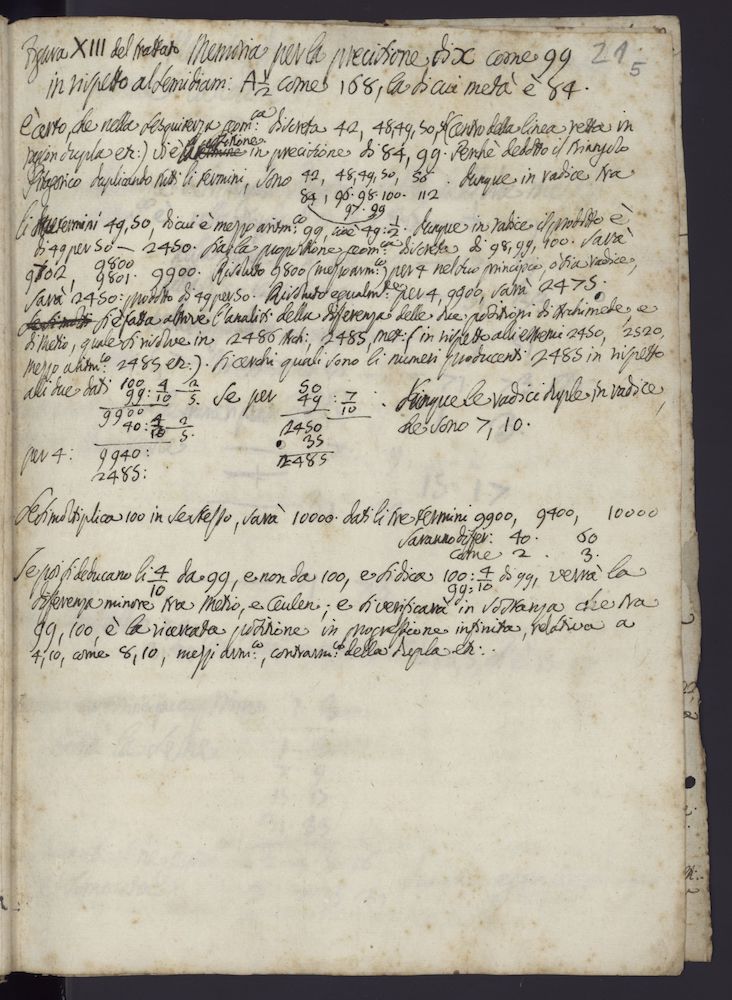 Figura XIII del trattato Memoria per la precisione di x come 99
21 5
in rispetto al semidiam: A 1/2 come 168, la di cui metà è 84.
È certo, che nella sesquiterza geom:ca discreta 42, 48, 49, 50, 56 (centro della linea retta in
ragion dupla etc:) si è la posizione in precisione di 84, 99. Perchè dedotto il triangolo
duplicando tutti li termini, sono 42, 48, 49, 50, 56. Dunque in radice tra
84, 96. 98. 100. 112
97. 99
li termini 49, 50, di cui è mezzo aritm:co 99, cioè 49: 1/2. Dunque in radice il prodotto è
di 49 per 50 — 2450. Sia la proporzione geom:ca discreta di 98, 99, 100. Sarà
9702, 9800 9801. 9900. Risoluto 9800 (mezzo arm:co) per 4 nel suo principio, o sia radice,
sarà 2450: prodotto di 49 per 50. Risoluto egualm:te per 4, 9900, sarà 2475.
Si è fatta altrove l'analisi della differenza delle due posizioni di Archimede, e
di Metio, quale si risolve in 2486 Arch: 2485 Met: (in rispetto alli estremi 2450, 2520,
mezzo aritm:co 2485 etc:). Si cerchi quali sono li numeri producenti 2485 in rispetto
alli due dati 100 99: 4/10 — 2/5. Se per 50 49: 7/10. Dunque le radici duple in radice
9900 2450 che sono 7, 10.
40: 4/10 — 2/5. 35
per 4: 9940: 2485
2485:
Se si moltiplica 100 in se stesso, sarà 10000. Dati li tre termini 9900, 9400, 10000
saranno differ: 40. 60
come 2. 3.
Se poi si deducano li 4/10 da 99, e non da 100, e si dica 100: 4/10 di 99, verrà la
99: 10
differenza minore tra Metio, e Ceulen; e si verificarà in sostanza che tra
99, 100, è la ricercata posizione in progressione infinita, relativa a
4, 10, come 8, 10, mezzi arm:co, contrarm:co della dupla etc:.